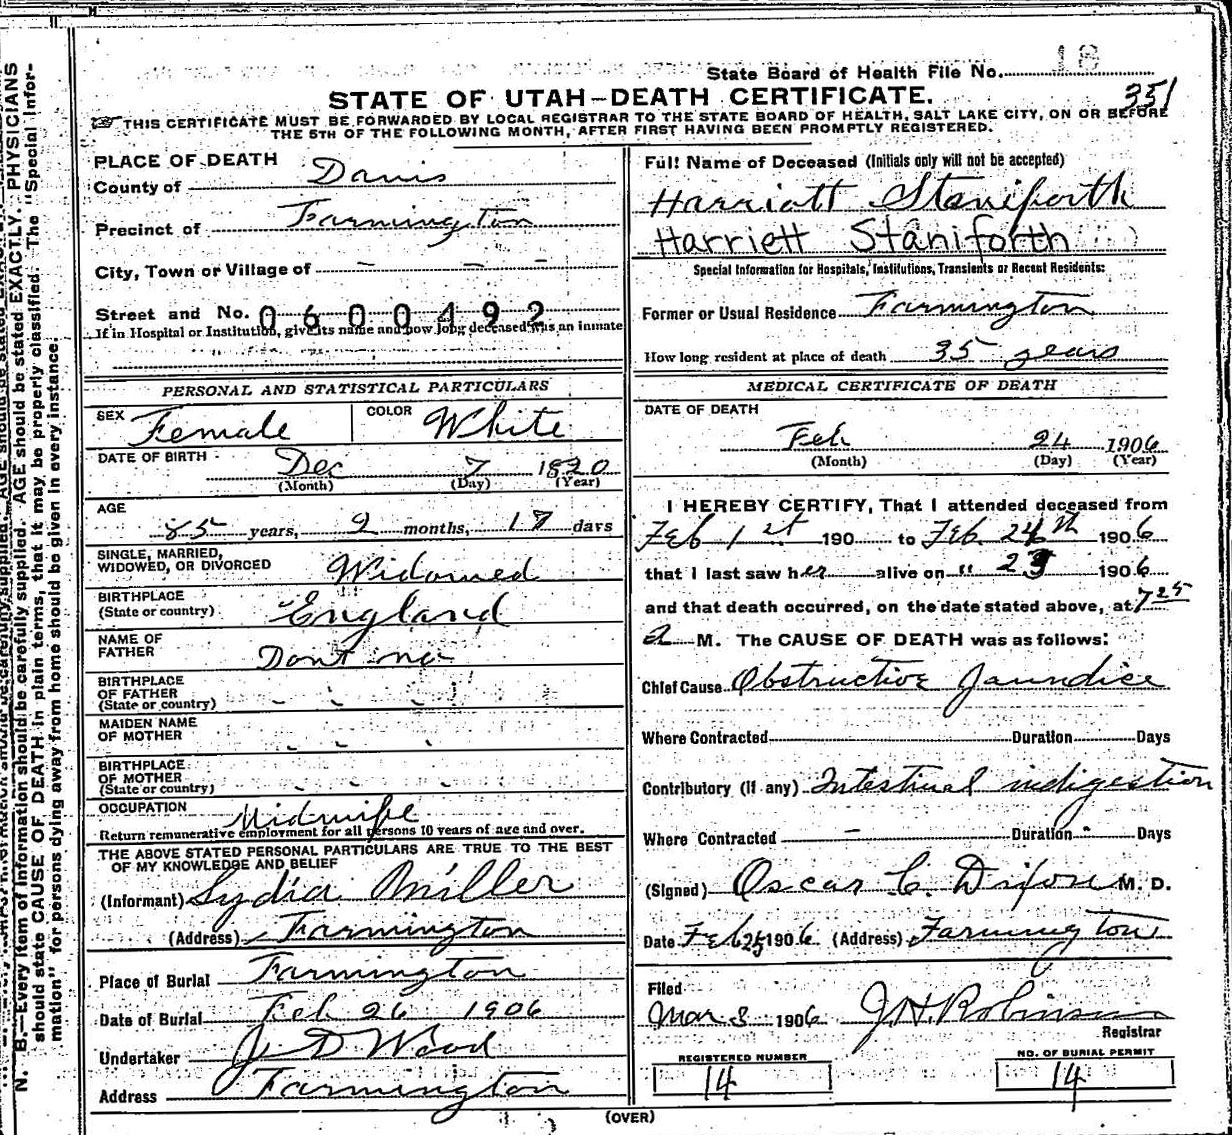 State Board of Health File No. 18
351
STATE OF UTAH–DEATH CERTIFICATE.
THIS CERTIFICATE MUST BE FORWARDED BY LOCAL REGISTRAR TO THE STATE BOARD OF HEALTH, SALT LAKE CITY, ON OR BEFORE
THE 5TH OF THE FOLLOWING MONTH, AFTER FIRST HAVING BEEN PROMPTLY REGISTERED.
PLACE OF DEATH
County of Davis
Precinct of Farmington
City, Town or Village of – – –
Street and No. 0600492
If in Hospital or Institution, give its name and how long deceased was an inmate
PERSONAL AND STATISTICAL PARTICULARS
SEX Female COLOR White
DATE OF BIRTH Dec 7 1820
(Month) (Day) (Year)
AGE
85 years, 2 months, 17 days
SINGLE, MARRIED,
WIDOWED, OR DIVORCED Widowed
BIRTHPLACE
(State or country) England
NAME OF
FATHER Dont no
BIRTHPLACE
OF FATHER
(State or country) - - -
MAIDEN NAME
OF MOTHER - - -
BIRTHPLACE
OF MOTHER
(State or country) - - -
OCCUPATION Midwife
Return remunerative employment for all persons 10 years of age and over.
THE ABOVE STATED PERSONAL PARTICULARS ARE TRUE TO THE BEST
OF MY KNOWLEDGE AND BELIEF
(Informant) Lydia Miller
(Address) Farmington
Place of Burial Farmington
Date of Burial Feb 26 1906
Undertaker J D Wood
Address Farmington
Full Name of Deceased (Initials only will not be accepted)
Harriatt Staniforth
Harriett Staniforth
Special Information for Hospitals, Institutions, Transients or Recent Residents:
Former or Usual Residence Farmington
How long resident at place of death 35 years
MEDICAL CERTIFICATE OF DEATH
DATE OF DEATH
Feb 24 1906
(Month) (Day) (Year)
I HEREBY CERTIFY, That I attended deceased from
Feb 1st 190 to Feb 24th 1906
that I last saw her alive on " 23 1906
and that death occurred, on the date stated above, at 7 25
a M. The CAUSE OF DEATH was as follows:
Chief Cause Obstructive Jaundice
Where Contracted Duration Days
Contributory (if any) Intestinal indigestion
Where Contracted – Duration - Days
(Signed) Oscar C. Dixon M. D.
Date Feb 25 1906 (Address) Farmington
Filed
Mar 3 1906 J.H. Robinson
Registrar
REGISTERED NUMBER
14
NO. OF BURIAL PERMIT
14
(OVER)
N. B.—Every item of information should be carefully supplied. AGE should be stated EXACTLY. PHYSICIANS
should state CAUSE OF DEATH in plain terms, that it may be properly classified. The "Special Infor-
mation" for persons dying away from home should be given in every instance.